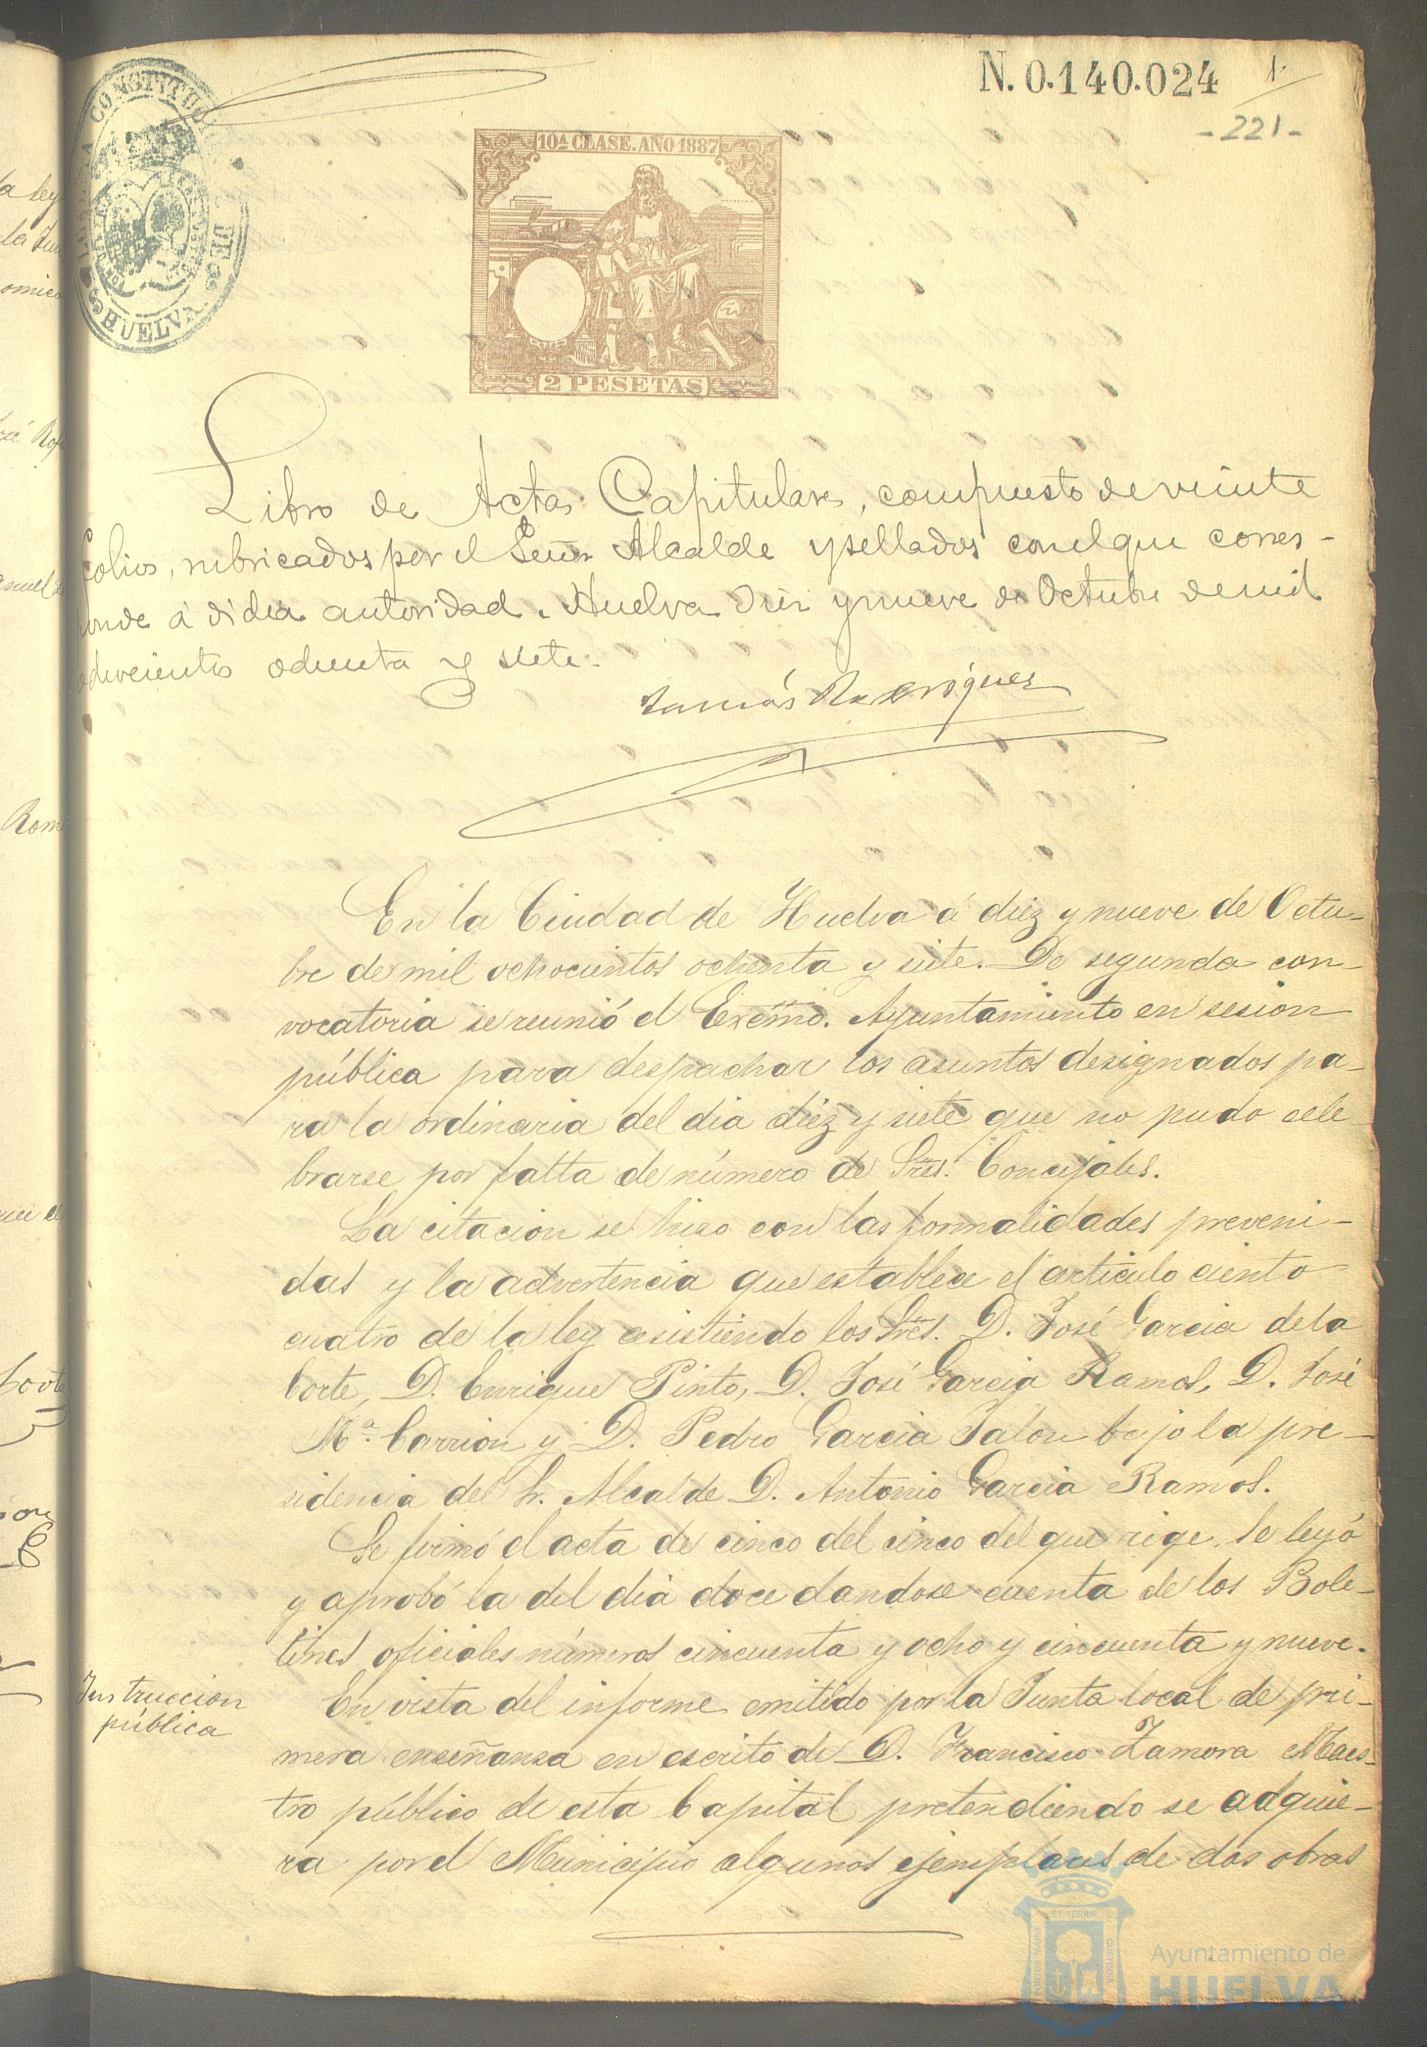 N. 0.140.024
1.
- 221 -
ALCALDIA CONSTITUCIONAL DE HUELVA
10ª CLASE. AÑO 1887
2 PESETAS
Libro de Actas Capitulares, compuesto de veinte
folios, rubricados por el Señor Alcalde y sellados con el que corres-
ponde á dicha autoridad. Huelva diez y nueve de Octubre de mil
ochocientos ochenta y siete.
Tomás Rodriguez
En la Ciudad de Huelva á diez y nueve de Octu-
bre de mil ochocientos ochenta y siete. De segunda con-
vocatoria se reunió el Excmo. Ayuntamiento en sesion
pública para despachar los asuntos designados pa-
ra la ordinaria del dia diez y siete que no pudo cele
brarse por falta de número de Sres. Concejales.
La citacion se hizo con las formalidades preveni-
das y la advertencia que establece el articulo ciento
cuatro de la ley asistiendo los Sres. D. José Garcia de la
Corte, D. Enrique Pinto, D. José Garcia Ramos, D. José
Mª. Carrion y D. Pedro Garcia Jalon bajo la pre-
sidencia del Sr. Alcalde D. Antonio Garcia Ramos.
Se firmó el acta de cinco del cinco del que rige. Se leyó
y aprobó la del dia doce dandose cuenta de los Bole-
tines oficiales números cincuenta y ocho y cincuenta y nueve.
Instruccion
pública
En vista del informe emitido por la Junta local de pri-
mera enseñanza en escrito de D. Francisco Zamora Maes-
tro público de esta Capital pretendiendo se adquie-
ra por el Municipio algunos ejemplares de dos obras
Ayuntamiento de
HUELVA